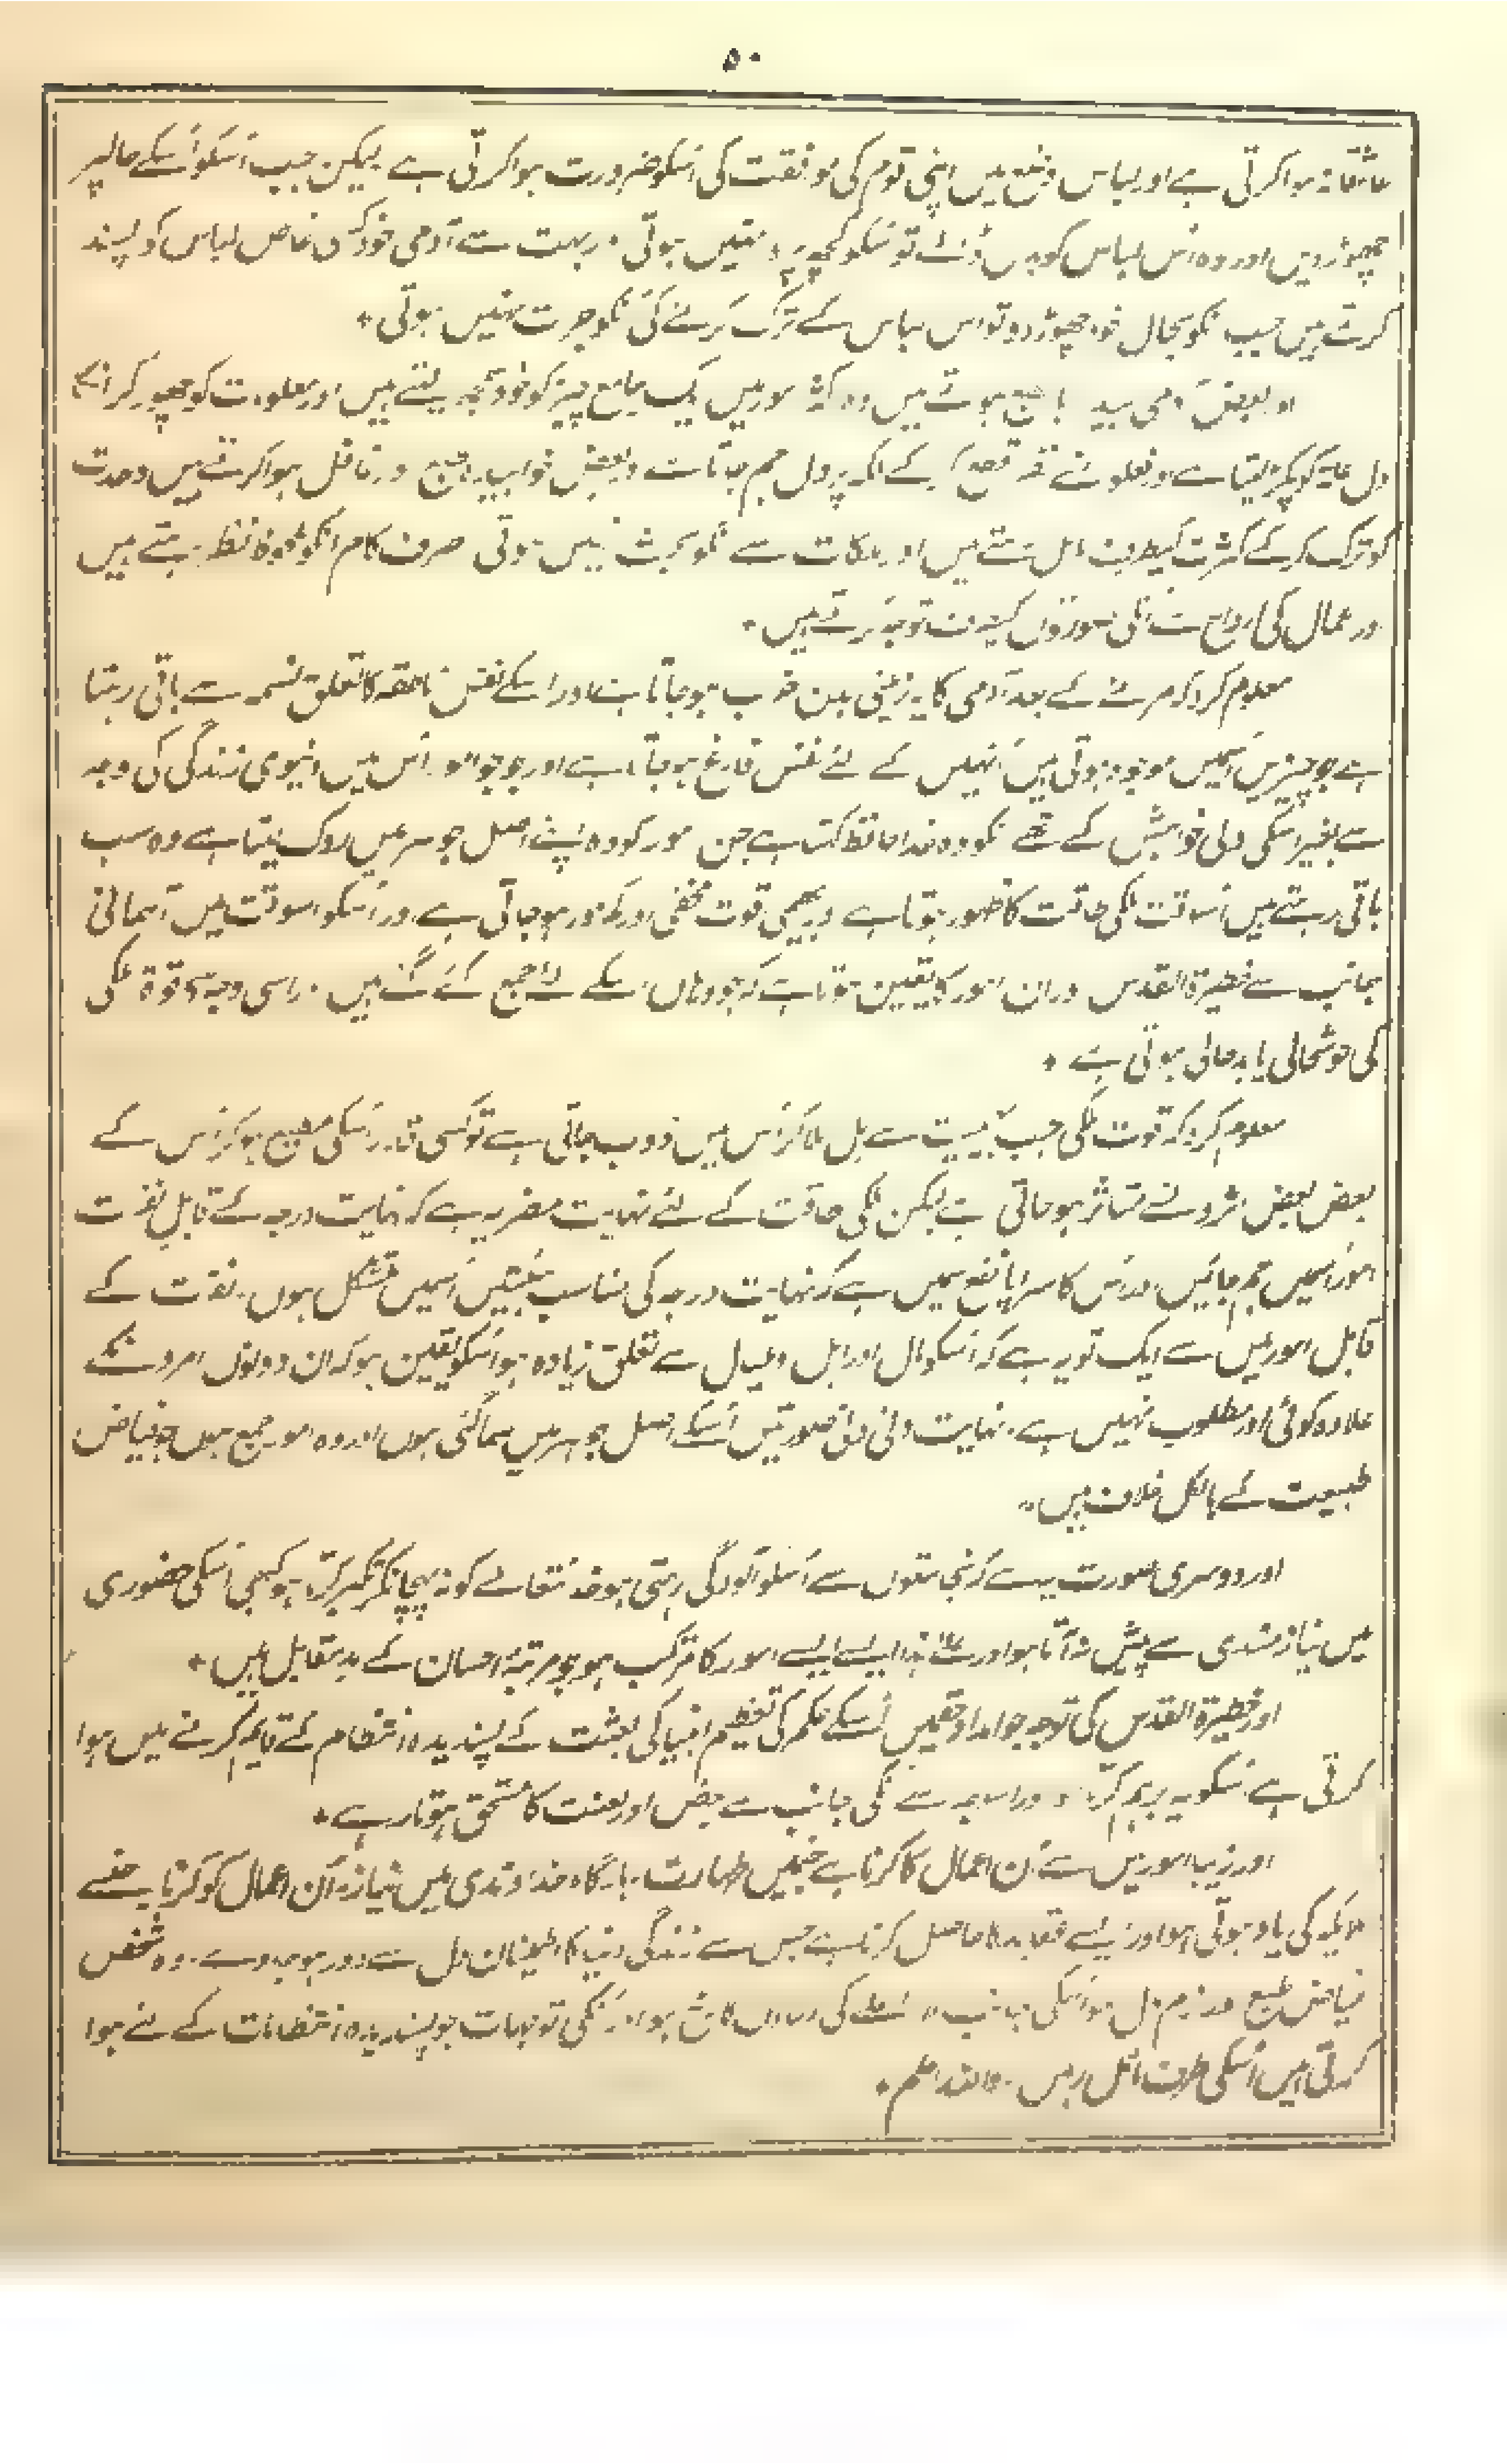 ۵۰
عاشقانہ ہوا کرتی ہے اور لباس وضع میں اپنی قوم کی موافقت کی اسکو ضرورت ہوا کرتی ہے لیکن جب اسکو اُسکے حالپر
چھوڑ دیں اور وہ اس لباس کو بدل ڈالے تو اسکو کچھ پروا نہیں ہوتی ۔ بہت سے آدمی خود کسی خاص لباس کو پسند
کرتے ہیں جب انکو بحال خود چھوڑ دو تو اس لباس کے ترک کرنے کی انکو جرت نہیں ہوتی ٭
اور بعض آدمی ہوتے ہیں وہ کہ امور میں ایک جامع چیز کو خود سمجھ لیتے ہیں اور معلومات کو چھوڑ کر انکا
دل علۃ کو پکڑ لیتا ہے اور کے ملکہ پر دل جم جاتا ہے اور بعض اور غافل ہوا کرتے ہیں وحدت
کو ترک کر کے کثرت کیطرف مائل ہوتے ہیں اور ملکات سے انکو بحث نہیں ہوتی صرف کام انکو ملحوظ رہتے ہیں
اور اعمال کی ارواح سے انکی صورتوں کیطرف توجہ کرتے ہیں ٭
معلوم کرو کہ مرنے کے بعد آدمی کا یہ زمینی بدن خراب ہو جاتا ہے اور اسکے نفس ناطقہ کا تعلق نسمہ سے باقی رہتا
ہے جو چیزیں اسمیں موجود ہوتی ہیں انہیں کے لئے نفس فارغ ہو جاتا ہے اور جو امور اس میں دنیوی زندگی کی وجہ
سے بغیر اسکی دلی خواہش کے تھے انکو وہ جن امور کو وہ اپنے اصل جوہر میں روک لیتا ہے وہ سب
باقی رہتے ہیں اسوقت ملکی طاقت کا ظہور ہوتا ہے اور بہیمی قوت مخفی اور کمزور ہو جاتی ہے اور اسکو اسوقت میں آسمانی
جانب سے خطیرۃ القدس اور ان امور کا یقین ہوتا ہے کہ جو وہاں اسکے لئے جمع کئے گئے ہیں ۔ اسی وجہ سے قوۃ ملکی
کی خوشحالی یا بد حالی ہوتی ہے ٭
معلوم کرو کہ قوت ملکی جب بہیمیت سے مل ملا کر اس میں ڈوب جاتی ہے تو کسی قدر اسکی مطیع ہو کر اس کے
بعض بعض اثروں سے متاثر ہو جاتی ہے لیکن ملکی طاقت کے لئے نہایت مضر یہ ہے کہ نہایت درجہ کے قابل نفرت
امور اسمیں جم جائیں اور اس کا سراپا نفع اسمیں ہے کہ نہایت درجہ کی مناسب ہیئتیں اسمیں متشکل ہوں ۔ نفرت کے
قابل امور میں سے ایک تو یہ ہے کہ اسکو مال اور اہل و عیال سے تعلق زیادہ ہو اسکو یقین ہو کہ ان دونوں امروں کے
علاوہ کوئی اور مطلوب نہیں ہے ۔ نہایت دنی دنی صورتیں اسکے اصل جوہر میں سما گئی ہوں اور وہ امور جمع ہوں جو فیاض
طبیعت کے بالکل خلاف ہیں ٭
اور دوسری صورت یہ ہے کہ نجاستوں سے اسکو آلودگی رہتی ہو خدا تعالے کو نہ پہچانکر تکبر کرتا ہو کبھی اسکی حضوری
میں نیازمندی سے پیش نہ آتا ہو اور علے ہذا ایسے ایسے امور کا مرتکب ہو جو مرتبۂ احسان کے مدمقابل ہیں ٭
اور خطیرۃ القدس کی توجہ جو امداد حقمیں اسکے حکم کی تعظیم انبیا کی بعثت کے پسندیدہ انتظام کے قایم کرنے میں ہوا
کرتی ہے اسکو یہ برہم کرتا اور اسوجہ سے انکی جانب سے بغض اور لعنت کا مستحق ہوتا رہے ٭
اور زیبا امور میں سے ان اعمال کا کرنا ہے جنمیں طہارت ۔ بارگاہ خداوندی میں نیاز ۔ ان اعمال کو کرنا جنسے
ملایکہ کی یاد ہوتی ہو اور ایسے عقاید کا حاصل کرنا ہے جس سے زندگی دنیا کا اطمینان دل سے دور ہو جاوے ۔ وہ شخص
فیاض طبع اور نرم دل ہو اسکی جانب ملاء اعلے کی دعاؤں کا رخ ہو اور انکی توجہات جو پسندیدہ انتظامات کے لئے ہوا
کرتی ہیں اسکی طرف مائل رہیں ۔ واللہ اعلم ٭